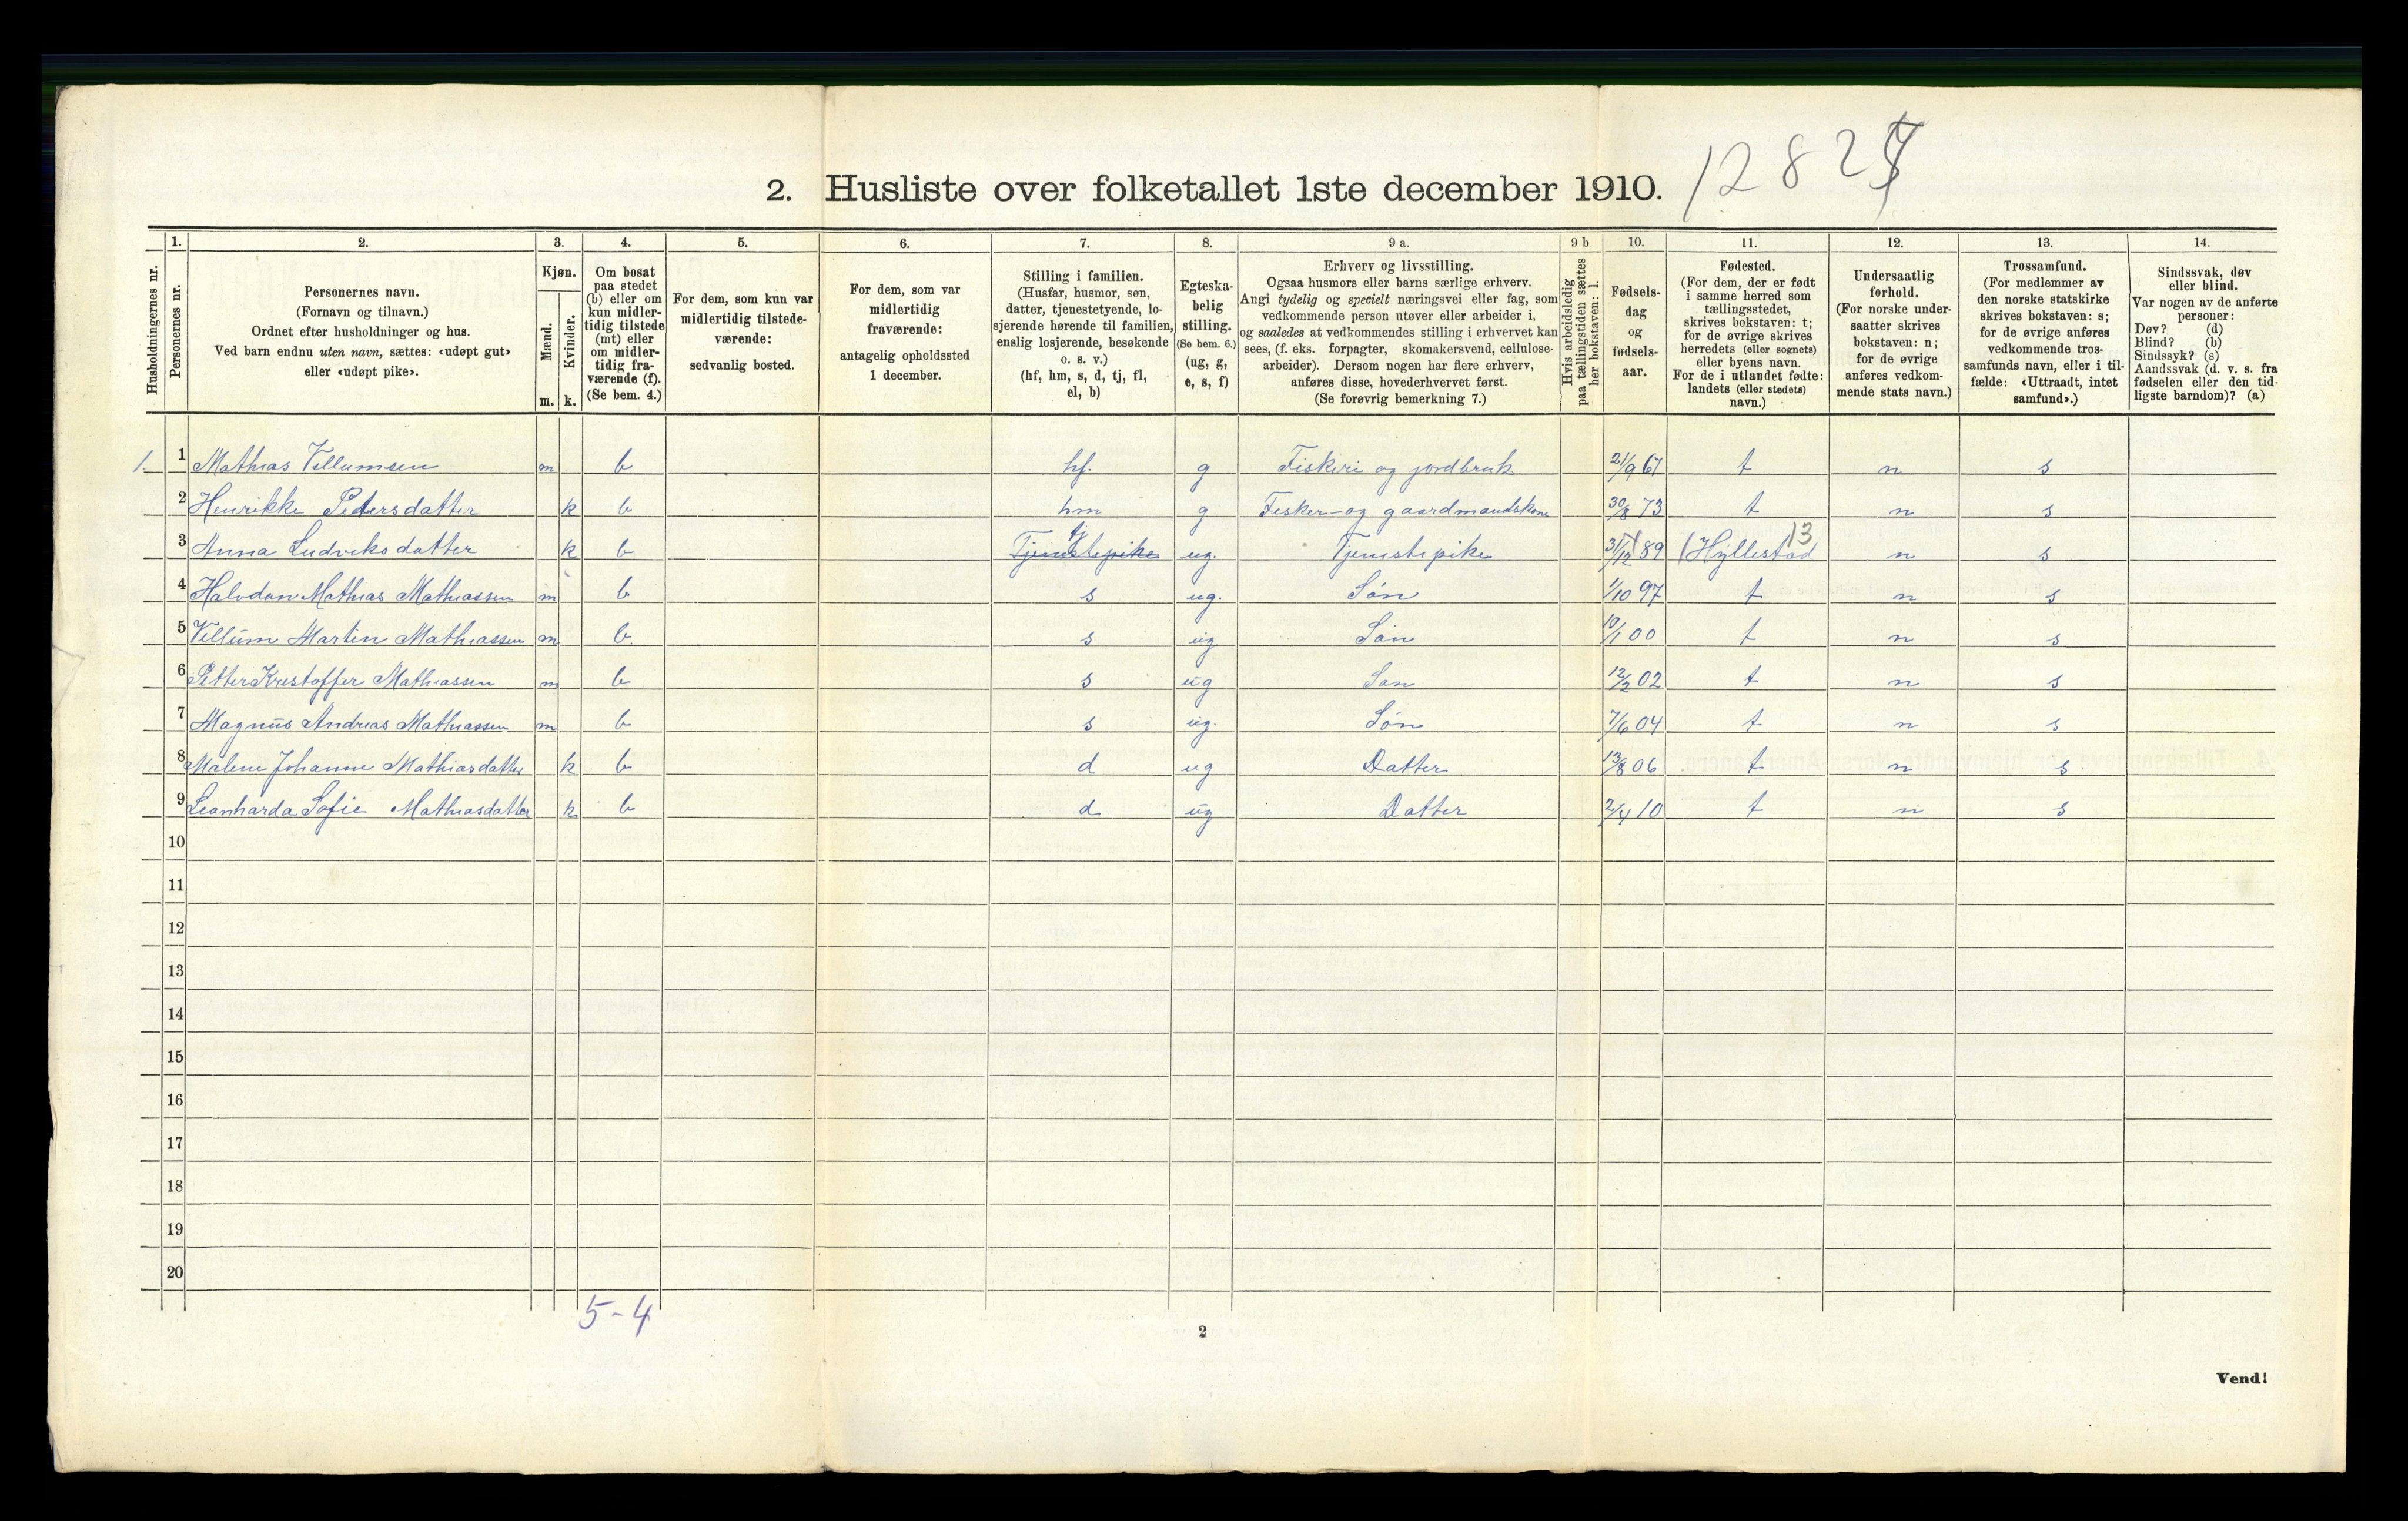 2. Husliste over folketallet 1ste december 1910.
1. 2. 3. 4. 5. 6. 7. 8. 9 a. 9 b 10. 11. 12. 13. 14.
Husholdningernes nr.
Personernes nr.
Personernes navn.
(Fornavn og tilnavn.)
Ordnet efter husholdninger og hus.
Ved barn endnu uten navn, sættes: «udøpt gut»
eller «udøpt pike».
Kjøn.
Mænd.
Kvinder.
m. k.
Om bosat
paa stedet
(b) eller om
kun midler-
tidig tilstede
(mt) eller
om midler-
tidig fra-
værende (f).
(Se bem. 4.)
For dem, som kun var
midlertidig tilstede-
værende:
sedvanlig bosted.
For dem, som var
midlertidig
fraværende:
antagelig opholdssted
1 december.
Stilling i familien.
(Husfar, husmor, søn,
datter, tjenestetyende, lo-
sjerende hørende til familien,
enslig losjerende, besøkende
o. s. v.)
(hf, hm, s, d, tj, fl,
el, b)
Egteska-
belig
stilling.
(Se bem. 6.)
(ug, g,
e, s, f)
Erhverv og livsstilling.
Ogsaa husmors eller barns særlige erhverv.
Angi tydelig og specielt næringsvei eller fag, som
vedkommende person utøver eller arbeider i,
og saaledes at vedkommendes stilling i erhvervet kan
sees, (f. eks. forpagter, skomakersvend, cellulose-
arbeider). Dersom nogen har flere erhverv,
anføres disse, hovederhvervet først.
(Se forøvrig bemerkning 7.)
Hvis arbeidsledig
paa tællingstiden sættes
her bokstaven: l.
Fødsels-
dag
og
fødsels-
aar.
Fødested.
(For dem, der er født
i samme herred som
tællingsstedet,
skrives bokstaven: t;
for de øvrige skrives
herredets (eller sognets)
eller byens navn.
For de i utlandet fødte:
landets (eller stedets)
navn.)
Undersaatlig
forhold.
(For norske under-
saatter skrives
bokstaven: n;
for de øvrige
anføres vedkom-
mende stats navn.)
Trossamfund.
(For medlemmer av
den norske statskirke
skrives bokstaven: s;
for de øvrige anføres
vedkommende tros-
samfunds navn, eller i til-
fælde: «Uttraadt, intet
samfund».)
Sindssvak, døv
eller blind.
Var nogen av de anførte
personer:
Døv? (d)
Blind? (b)
Sindssyk? (s)
Aandssvak (d. v. s. fra
fødselen eller den tid-
ligste barndom)? (a)
1. 1 Mathias Villumsen m b hf. g Fiskeri og jordbruk 21/9 67 t n s
2 Henrikke Petersdatter k b hm g Fisker- og gaardmandskone 30/8 73 t n s
3 Anna Ludviksdatter k b Tjenestepike tj ug. Tjenestepike 31/12 89 (Hyllestad 13 n s
4 Halvdan Mathias Mathiassen m b s ug. Søn 1/10 97 t n s
5 Villum Martin Mathiassen m b. s ug Søn 10/1 00 t n s
6 Petter Kristoffer Mathiassen m b s ug Søn 12/2 02 t n s
7 Magnus Andreas Mathiassen m b s ug. Søn 7/6 04 t n s
8 Malene Johanne Mathiasdatter k b d ug Datter 13/8 06 t n s
9 Leonharda Sofie Mathiasdatter k b d ug Datter 2/4 10 t n s
10
11
12
13
14
15
16
17
18
19
20
5-4
2
Vend!